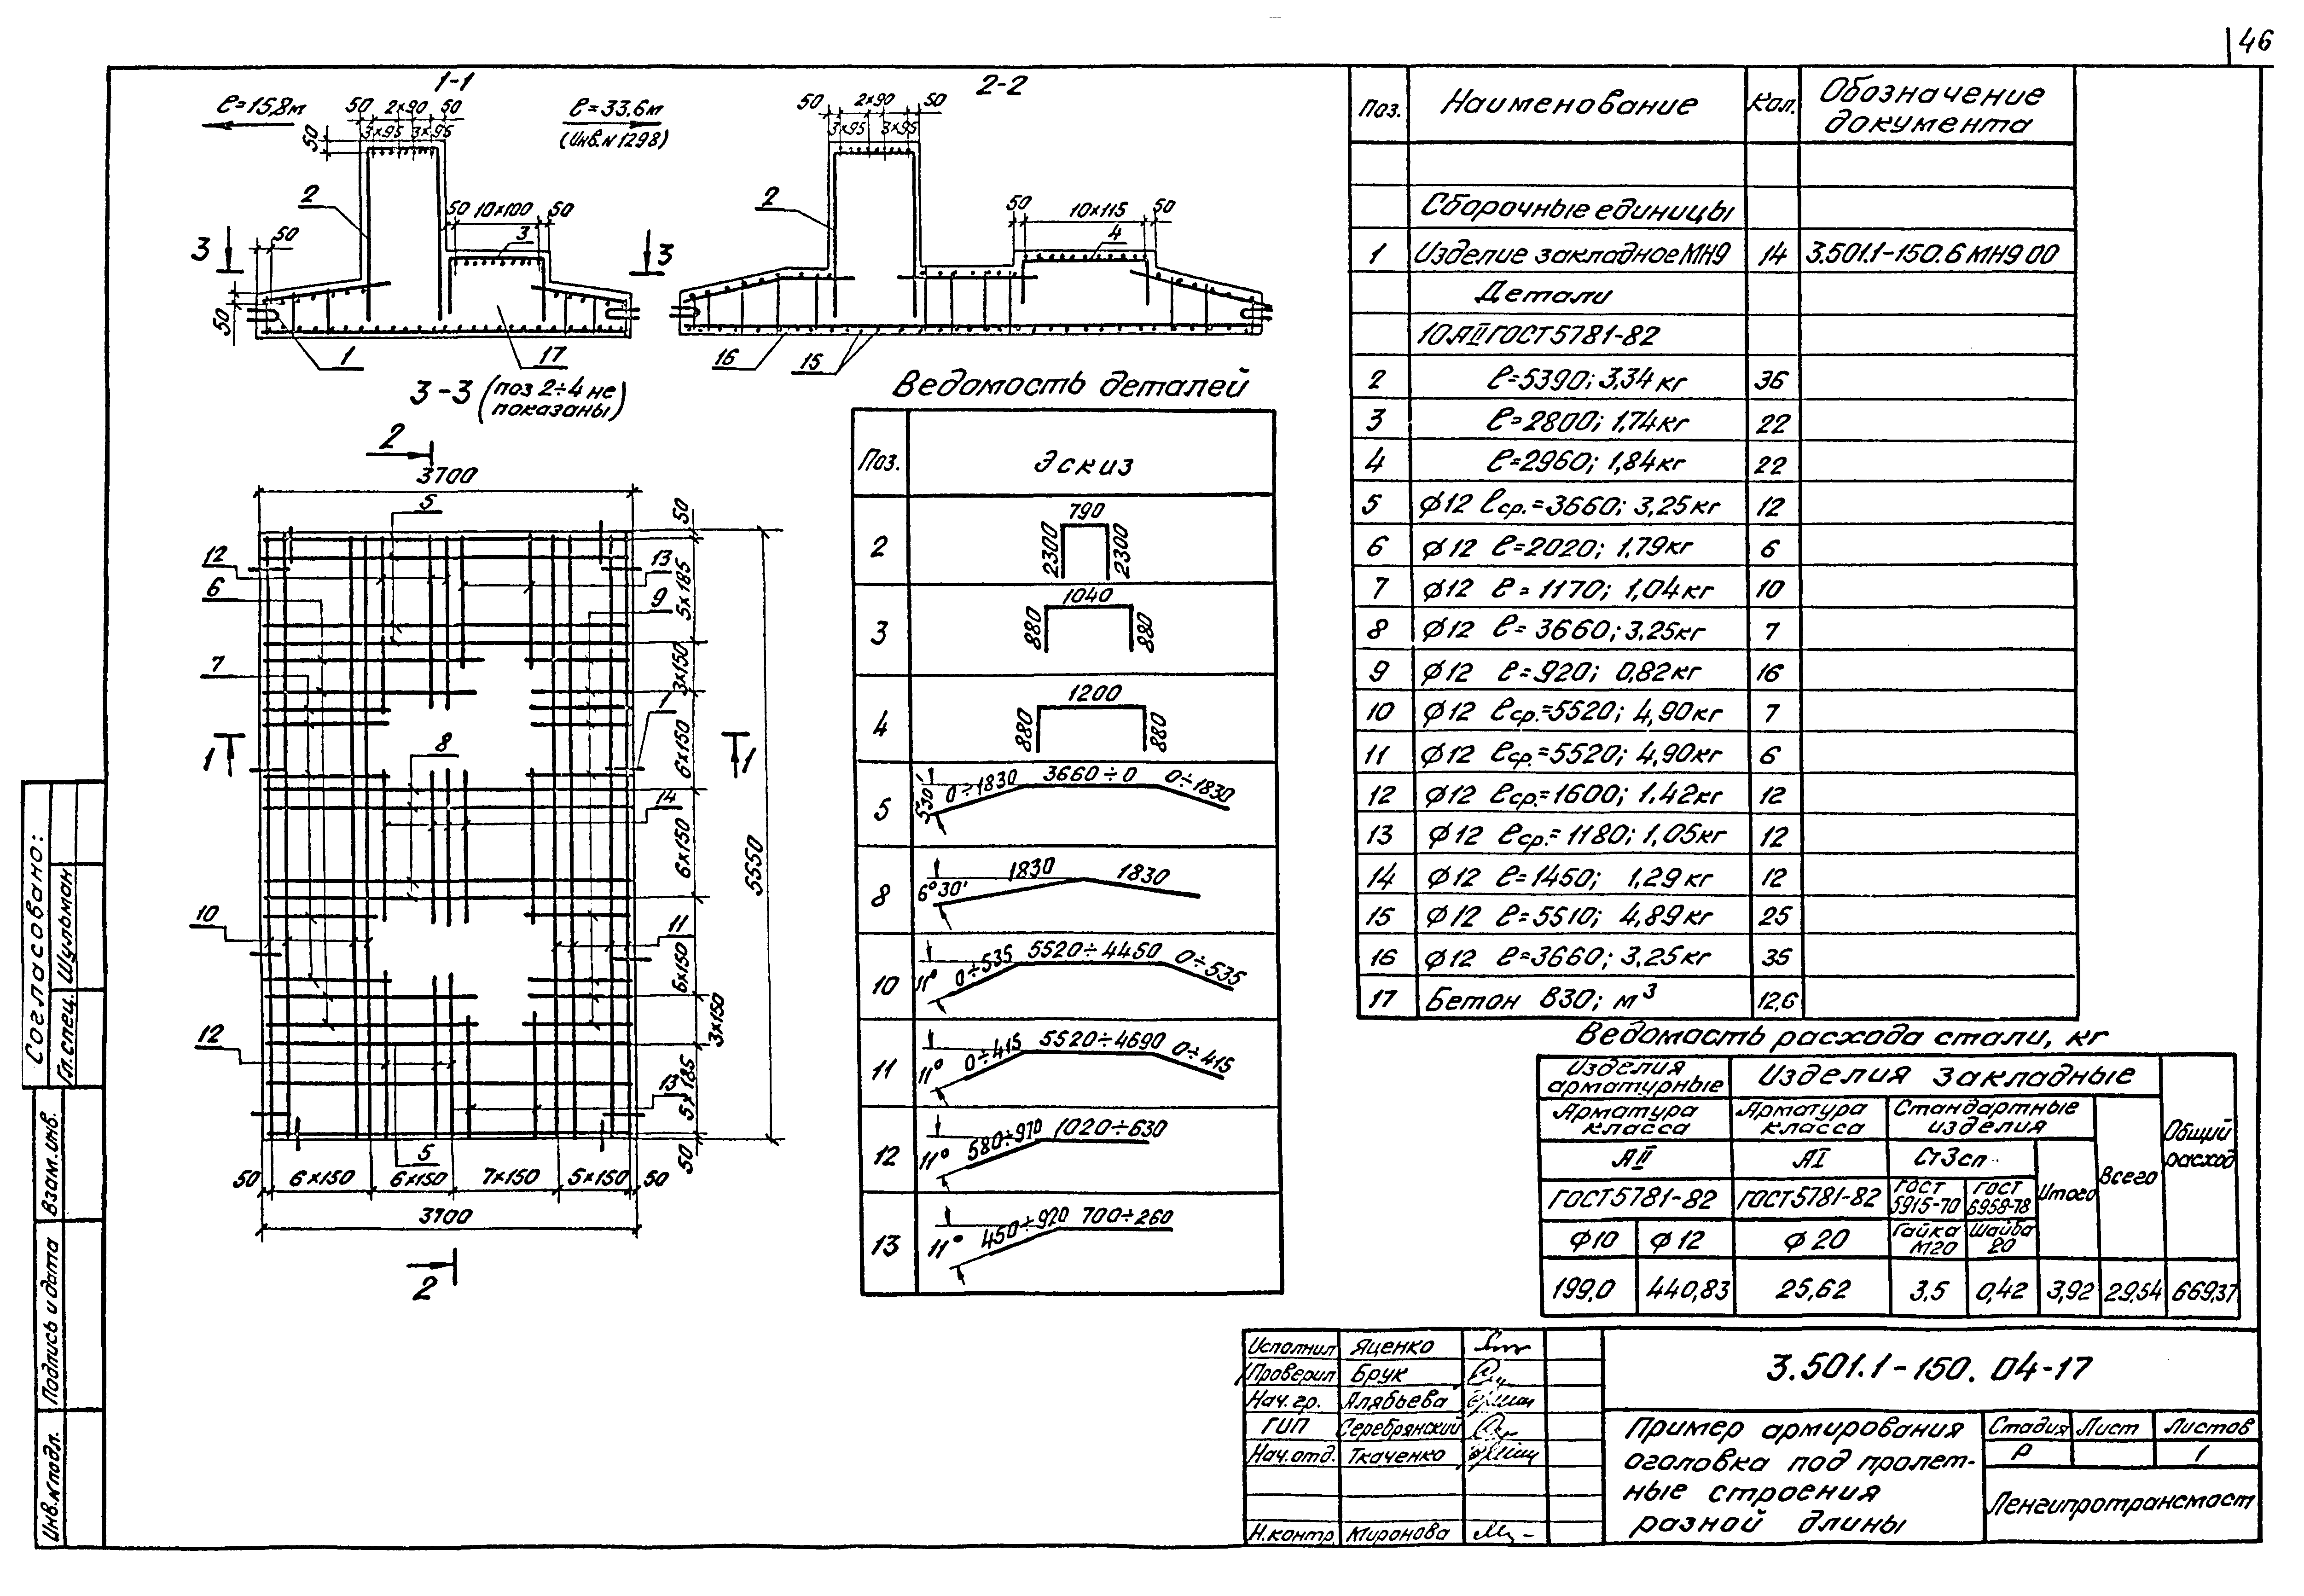 46
1-1
ℓ=15,8м
ℓ=33,6м
(Инв.№1298)
50 2×90 50
3×95 3×95
50
2
50 10×100 50
3
3 3
50
50
1
17
2-2
50 2×90 50
3×95 3×95
2
50 10×115 50
4
16
15
3-3 (поз 2÷4 не показаны)
2
3700
5
50
12
13
6
5×185
9
7
3×150
1
1 1
8
6×150
14
6×150
5550
10
11
6×150
3×150
12
13
5×185
5
50
50 6×150 6×150 7×150 5×150 50
3700
2
Ведомость деталей
Поз. Эскиз
2 790 2300 2300
3 1040 880 880
4 1200 880 880
5 5°30' 0÷1830 3660÷0 0÷1830
8 6°30' 1830 1830
10 11° 0÷535 5520÷4450 0÷535
11 11° 0÷415 5520÷4690 0÷415
12 11° 580÷970 1020÷630
13 11° 450÷920 700÷260
Поз. Наименование Кол. Обозначение документа
Сборочные единицы
1 Изделие закладное МН9 14 3.501.1-150.6 МН9 00
Детали
10АII ГОСТ5781-82
2 ℓ=5390; 3,34кг 36
3 ℓ=2800; 1,74кг 22
4 ℓ=2960; 1,84кг 22
5 ϕ12 ℓср.=3660; 3,25кг 12
6 ϕ12 ℓ=2020; 1,79кг 6
7 ϕ12 ℓ=1170; 1,04кг 10
8 ϕ12 ℓ=3660; 3,25кг 7
9 ϕ12 ℓ=920; 0,82кг 16
10 ϕ12 ℓср.=5520; 4,90кг 7
11 ϕ12 ℓср.=5520; 4,90кг 6
12 ϕ12 ℓср.=1600; 1.42кг 12
13 ϕ12 ℓср.=1180; 1,05кг 12
14 ϕ12 ℓ=1450; 1,29кг 12
15 ϕ12 ℓ=5510; 4,89кг 25
16 ϕ12 ℓ=3660; 3,25кг 35
17 Бетон В30; м³ 12,6
Ведомость расхода стали, кг
Изделия арматурные Изделия закладные Общий расход
Арматура класса Арматура класса Стандартные изделия Всего
АII АI Ст3сп Итого
ГОСТ5781-82 ГОСТ5781-82 ГОСТ 5915-70 ГОСТ 6958-78
ϕ10 ϕ12 ϕ20 Гайка М20 Шайба 20
199,0 440,83 25,62 3.5 0,42 3,92 29,54 669,37
Исполнил Яценко
Проверил Брук
Нач.гр. Алябьева
ГИП Серебрянский
Нач.отд. Ткаченко
Н.контр. Миронова
3.501.1-150. 04-17
Пример армирования
оголовка под пролет-
ные строения
разной длины
Стадия Лист Листов
Р 1
Ленгипротрансмост
Согласовано:
Гл.спец. Шульман
Взам.инв.
Подпись и дата
Инв.№подл.